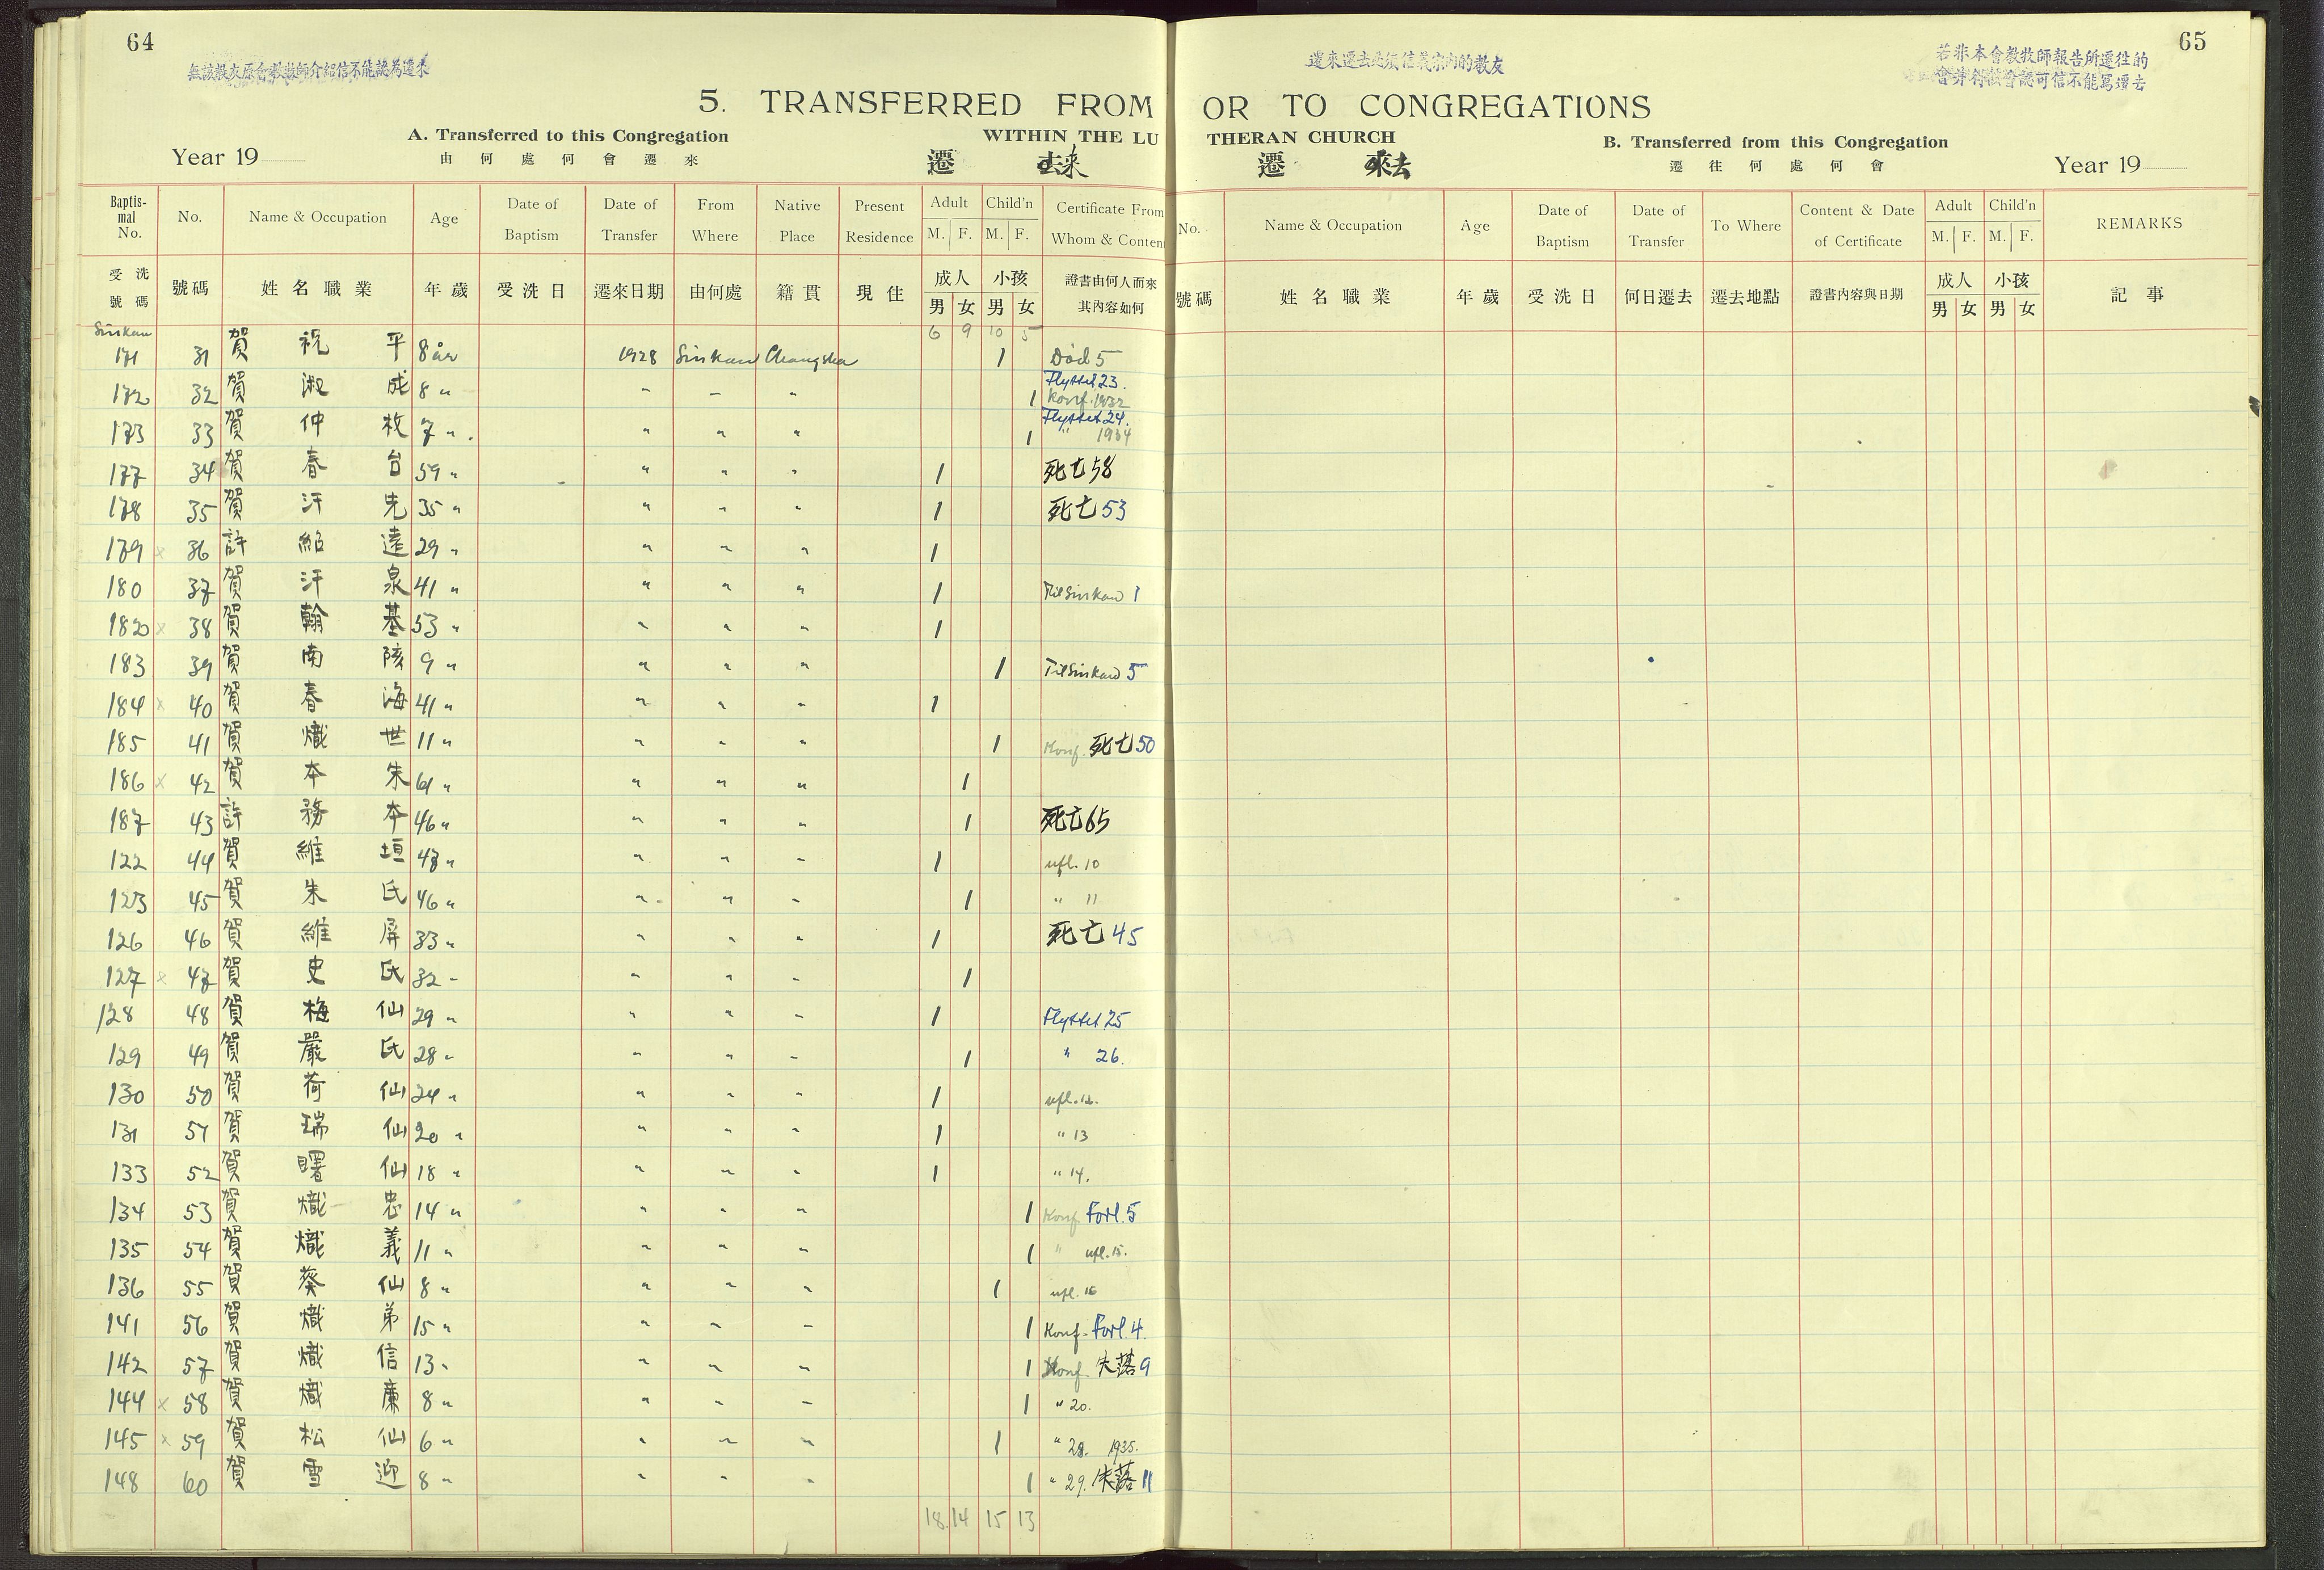 64
無該教友原會教牧師介紹信不能認為遷來
5. TRANSFERRED FROM
A. Transferred to this Congregation
WITHIN THE LU
Year 19
由何處何會遷來
遷 來
Baptismal No. No. Name & Occupation Age Date of Baptism Date of Transfer From Where Native Place Present Residence Adult M. F. Child'n M. F. Certificate From Whom & Content
受洗號碼 號碼 姓名職業 年歲 受洗日 遷來日期 由何處 籍貫 現住 成人 男 女 小孩 男 女 證書由何人而來其內容如何
Sinkau 6 9 10 5
171 31 賀祝平 8 år 1928 Sinkau Changsha 1 Död 5
172 32 賀淑成 8 " " " " 1 Flyttet 23. Konf. 1932
173 33 賀仲枚 7 " " " " 1 Flyttet 24. " 1934
177 34 賀春台 59 " " " " 1 死亡 58
178 35 賀汗先 35 " " " " 1 死亡 53
179 x 36 許紹遠 29 " " " " 1
180 37 賀汗泉 41 " " " " 1 Til Sinkau 1
182 x 38 賀翰基 53 " " " " 1
183 39 賀南陔 9 " " " " 1 Til Sinkau 5
184 x 40 賀春海 41 " " " " 1
185 41 賀熾世 11 " " " " 1 Konf. 死亡 50
186 x 42 賀本朱 61 " " " " 1
187 43 許務本 46 " " " " 1 死亡 65
122 44 賀維垣 47 " " " " 1 ufl. 10
123 45 賀朱氏 46 " " " " 1 " 11
126 46 賀維屏 33 " " " " 1 死亡 45
127 x 47 賀史氏 32 " " " " 1
128 48 賀梅仙 29 " " " " 1 Flyttet 25
129 49 賀嚴氏 28 " " " " 1 " 26.
130 50 賀荷仙 24 " " " " 1 ufl. 12.
131 51 賀瑞仙 20 " " " " 1 " 13
133 52 賀曙仙 18 " " " " 1 " 14.
134 53 賀熾忠 14 " " " " 1 Konf. Forl. 5
135 54 賀熾義 11 " " " " 1 " ufl. 15.
136 55 賀葵仙 8 " " " " 1 ufl. 16
141 56 賀熾弟 15 " " " " 1 Konf. Forl. 4.
142 57 賀熾信 13 " " " " 1 Konf. 失落 9
144 x 58 賀熾廉 8 " " " " 1 " 20.
145 x 59 賀松仙 6 " " " " 1 " 28. 1935.
148 60 賀雪迎 8 " " " " 1 " 29. 失落 11
18 14 15 13
65
遷來遷去必須信義宗內的教友
若非本會教牧師報告所遷往的
OR TO CONGREGATIONS
THERAN CHURCH
B. Transferred from this Congregation
遷 去
遷往何處何會
Year 19
No. Name & Occupation Age Date of Baptism Date of Transfer To Where Content & Date of Certificate Adult M. F. Child'n M. F. REMARKS
號碼 姓名職業 年歲 受洗日 何日遷去 遷去地點 證書內容與日期 成人 男 女 小孩 男 女 記事